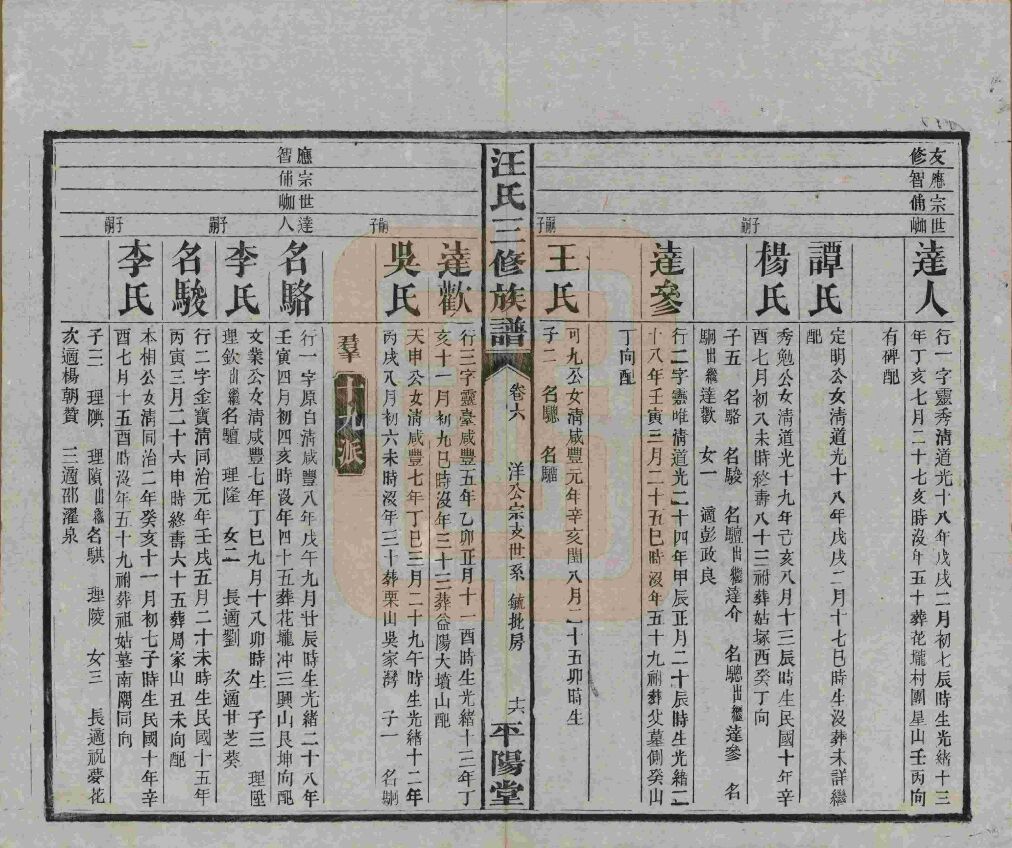 友應宗世
修智俌𠰺
達人
行一字靈秀淸道光十八年戊戌二月初七辰時生光緒十三
年丁亥七月二十七亥時沒年五十葬花壠村團星山壬丙向
有碑配
譚氏
定明公女淸道光十八年戊戌二月十七巳時生沒葬未詳繼
配
嗣子
楊氏
秀勉公女淸道光十九年己亥八月十三辰時生民國十年辛
酉七月初八未時終壽八十三祔葬姑塚酉癸丁向
子五 名駱 名駿 名驙出繼達介 名驄出繼達參 名
駉出繼達歡 女一 適彭政良
達參
行二字靈唯淸道光二十四年甲辰正月二十辰時生光緒二
十八年壬寅三月二十五巳時沒年五十九祔葬父墓側癸山
丁向配
嗣子
王氏
可九公女淸咸豐元年辛亥閏八月二十五卯時生
子二 名驄 名騮
汪氏三修族譜
卷六
洋公宗支世系 毓批房
十六
平陽堂
達歡
行三字靈臺咸豐五年乙卯正月十一酉時生光緒十三年丁
亥十一月初九巳時沒年三十三葬益陽大墳山配
嗣子
吳氏
天申公女淸咸豐七年丁巳三月二十九午時生光緒十二年
丙戌八月初六未時沒年三十葬栗山吳家灣 子一 名駉
羣
十九派
應宗世達
智俌𠰺人
名駱
行一字原白淸咸豐八年戊午九月廿辰時生光緒二十八年
壬寅四月初四亥時沒年四十五葬花壠冲三興山艮坤向配
嗣子
李氏
文業公女淸咸豐七年丁巳九月十八卯時生 子三 理陞
理欽出繼名驙 理隆 女二 長適劉 次適甘芝葵
名駿
行二字金寶淸同治元年壬戌五月二十未時生民國十五年
丙寅三月二十六申時終壽六十五葬周家山丑未向配
嗣子
李氏
本相公女淸同治二年癸亥十一月初七子時生民國十年辛
酉七月十五酉時沒年五十九祔葬祖姑墓南隅同向
子三 理陝 理隕出繼名騏 理陵 女三 長適祝夢花
次適楊朝贊 三適邵濯泉